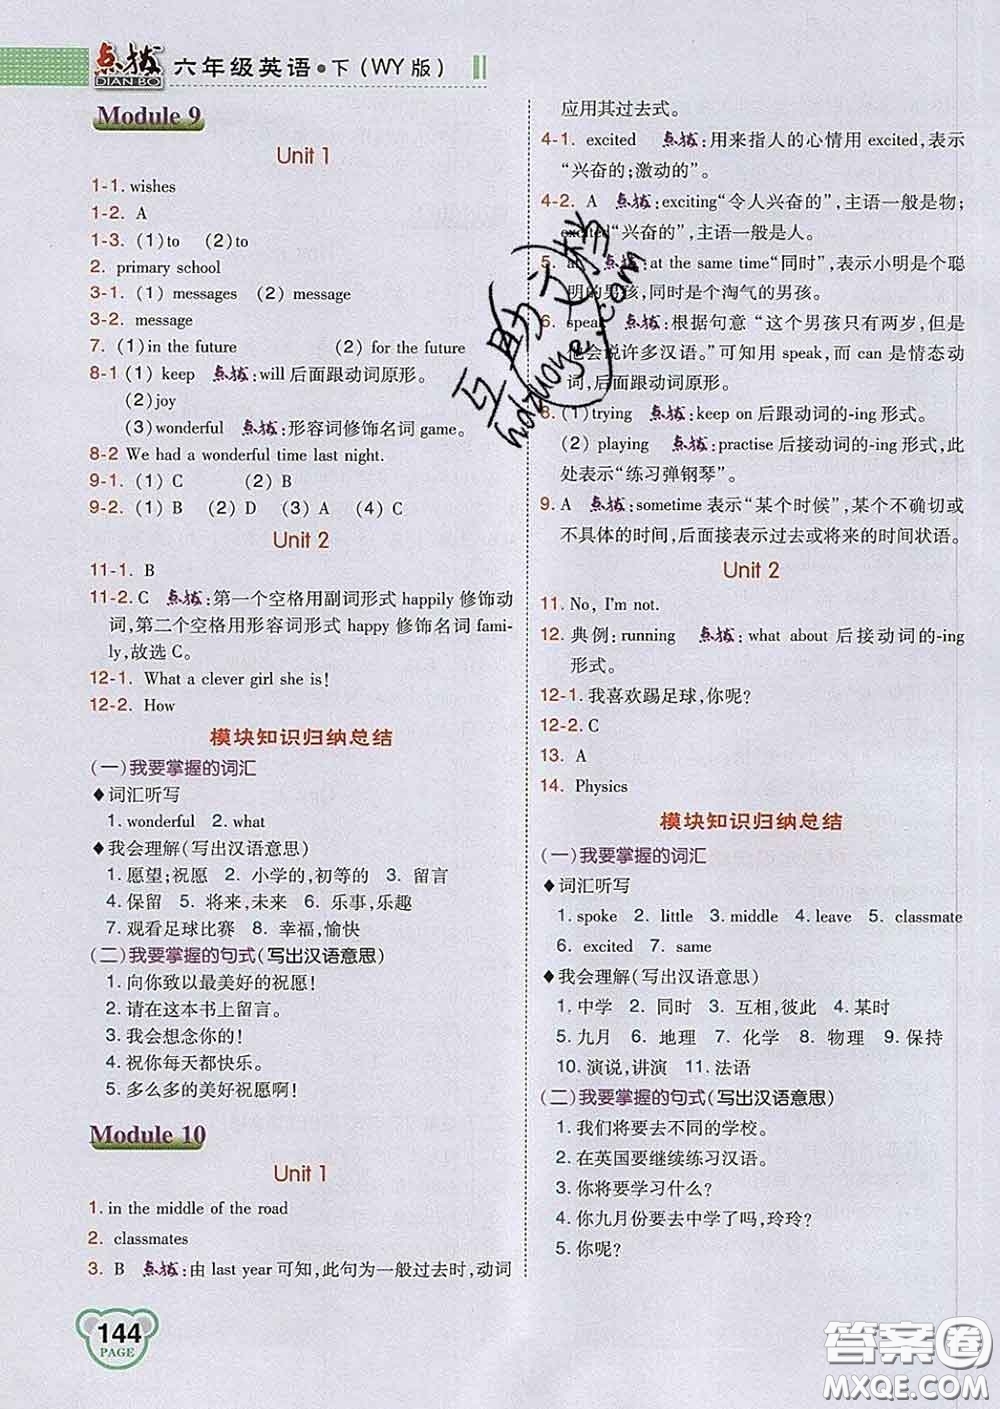 点拨 DIAN BO 六年级英语·下(WY版)
Module 9
Unit 1
1-1. wishes
1-2. A
1-3. (1)to (2)to
2. primary school
3-1. (1) messages (2) message
3-2. message
7. (1)in the future (2) for the future
8-1 (1) keep 点拨:will后面跟动词原形。
(2)joy
(3)wonderful 点拨:形容词修饰名词 game。
8-2 We had a wonderful time last night.
9-1. (1) C (2) B
9-2. (1) B (2) D (3) A (4) C
Unit 2
11-1. B
11-2. C 点拨:第一个空格用副词形式 happily 修饰动
词,第二个空格用形容词形式 happy 修饰名词 fami-
ly,故选 C。
12-1. What a clever girl she is!
12-2. How
模块知识归纳总结
(一)我要掌握的词汇
◆词汇听写
1. wonderful 2. what
◆我会理解(写出汉语意思)
1. 愿望;祝愿 2. 小学的,初等的 3. 留言
4. 保留 5. 将来,未来 6. 乐事,乐趣
7. 观看足球比赛 8. 幸福,愉快
(二)我要掌握的句式(写出汉语意思)
1. 向你致以最美好的祝愿!
2. 请在这本书上留言。
3. 我会想念你的!
4. 祝你每天都快乐。
5. 多么多的美好祝愿啊!
Module 10
Unit 1
1. in the middle of the road
2. classmates
3. B 点拨:由 last year 可知,此句为一般过去时,动词
应用其过去式。
4-1. excited 点拨:用来指人的心情用 excited,表示
“兴奋的;激动的”。
4-2. A 点拨:exciting“令人兴奋的”,主语一般是物;
excited“兴奋的”,主语一般是人。
5. at 点拨:at the same time“同时”,表示小明是个聪
明的男孩,同时是个淘气的男孩。
6. speak 点拨:根据句意“这个男孩只有两岁,但是
他会说许多汉语。”可知用 speak,而 can 是情态动
词,后面跟动词原形。
8. (1)trying 点拨:keep on 后跟动词的-ing 形式。
(2) playing 点拨:practise 后接动词的-ing 形式,此
处表示“练习弹钢琴”。
9. A 点拨:sometime 表示“某个时候”,某个不确切或
不具体的时间,后面接表示过去或将来的时间状语。
Unit 2
11. No, I'm not.
12. 典例:running 点拨:what about 后接动词的-ing
形式。
12-1.我喜欢踢足球,你呢?
12-2. C
13. A
14. Physics
模块知识归纳总结
(一)我要掌握的词汇
◆词汇听写
1. spoke 2. little 3. middle 4. leave 5. classmate
6. excited 7. same
◆我会理解(写出汉语意思)
1. 中学 2. 同时 3. 互相,彼此 4. 某时
5. 九月 6. 地理 7. 化学 8. 物理 9. 保持
10. 演说,讲演 11. 法语
(二)我要掌握的句式(写出汉语意思)
1. 我们将要去不同的学校。
2. 在英国要继续练习汉语。
3. 你将要学习什么?
4. 你九月份要去中学了吗,玲玲?
5. 你呢?
144
PAGE
互助文档
hdzuoye.com
答案圈
MXQE.COM